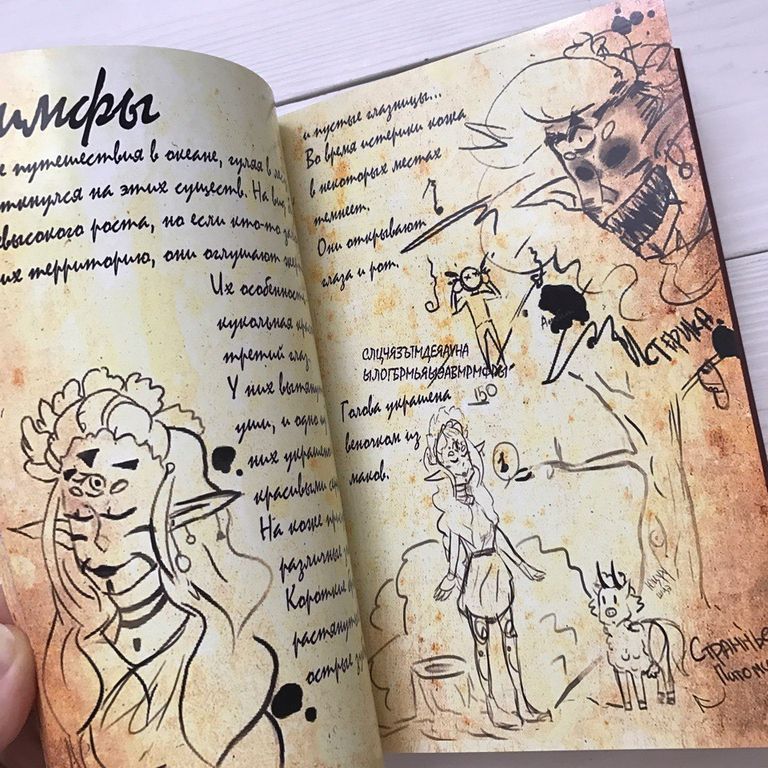 имфы
е путешествия в океане, гуляя в ле
ткнулся на этих существ. На вид
евысокого роста, но если кто-то за
их территорию, они оглушают
Их особенность
кукольная кра
третий глаз.
У них вытяну
уши, и одно из
них украшено
красивыми се
На коже при
различные у
Короткие
растянуты
острые зу
и пустые глазницы...
Во время истерики кожа
в некоторых местах
темнеет.
Они открывают
глаза и рот.
Истерика.
СЛЦЧЯЗЪТМДЕЯАУНА
150
Голова украшена
веночком из
маков.
1
Странные
Питом